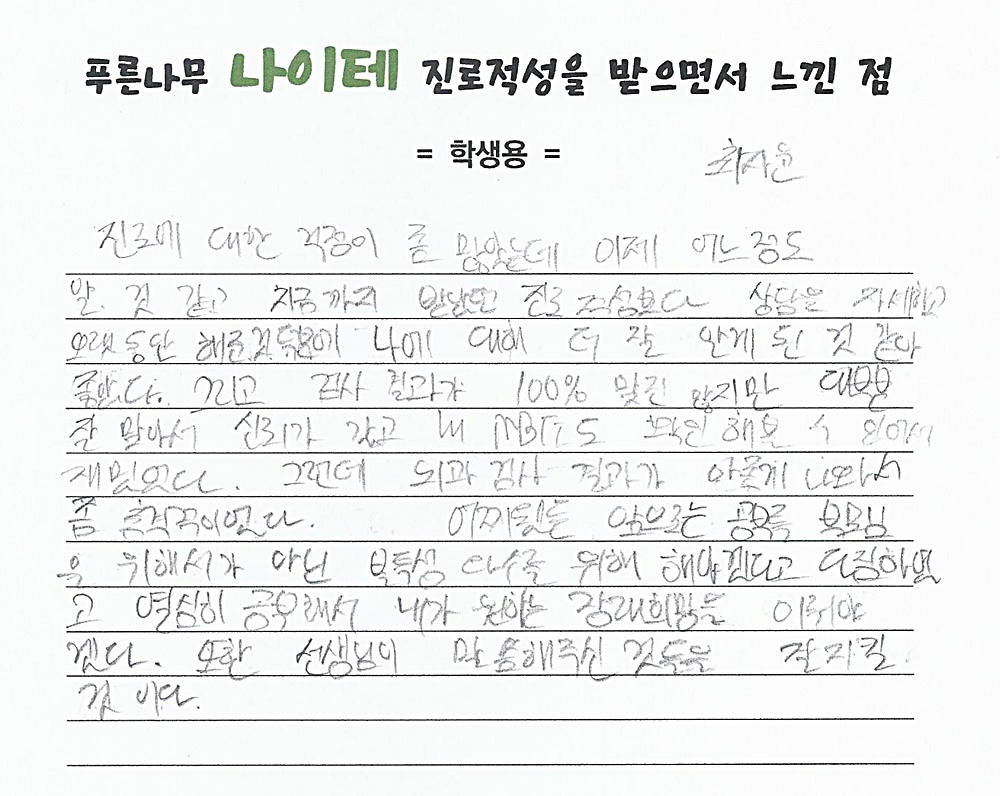 푸른나무 나이테 진로적성을 받으면서 느낀 점
= 학생용 =
최자윤
진로에 대한 걱정이 좀 많았는데 이제 어느정도
알 것 같고 지금까지 받았던 진로 적성보다 상담을 자세하고
오랫동안 해준것 때문에 나에 대해 더 잘 알게 된 것 같아
좋았다. 그리고 검사 결과가 100% 맞진 않지만 대부분
잘 맞아서 신뢰가 갔고 내 MBTI도 확인해볼 수 있어서
재밌었다. 그런데 뇌과 검사 결과가 안좋게 나와서
좀 충격적이었다. 어찌됐든 앞으로는 공부를 부모님
을 위해서가 아닌 불특성 다수를 위해 해야겠다고 다짐하였
고 열심히 공부해서 내가 원하는 장래희망을 이뤄야
겠다. 또한 선생님이 말씀해주신 것들을 잘 지킬
것 이다.